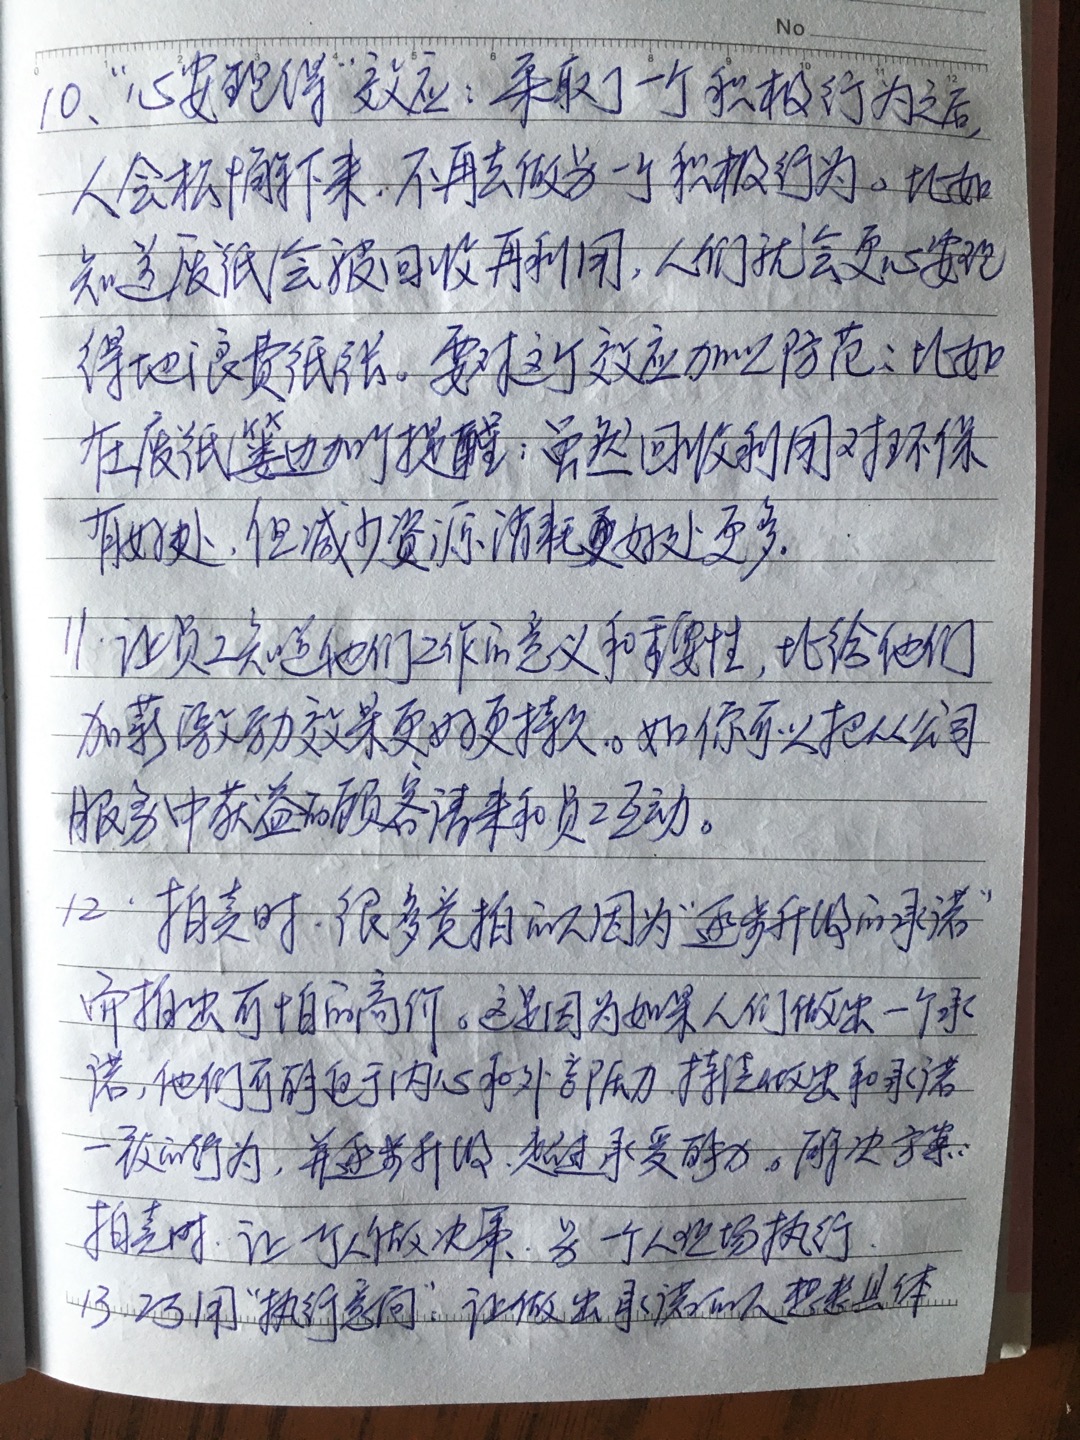 No
0 1 2 3 4 5 6 7 8 9 10 11 12
10、“心安理得”效应：采取了一个积极行为之后,
人会松懈下来.不再去做另一个积极行为。比如
知道废纸会被回收再利用,人们就会更心安理
得地浪费纸张。要对这个效应加以防范：比如
在废纸篓边加个提醒：虽然回收利用对环保
有好处.但减少资源消耗更好处更多.
11.让员工知道他们工作的意义和重要性,比给他们
加薪激励效果更好更持久。如你可以把从公司
服务中获益的顾客请来和员工互动。
12.拍卖时.很多竞拍的人因为“逐步升级的承诺”
而拍出可怕的高价。这是因为如果人们做出一个承
诺,他们可能迫于内心和外部压力.持续做出和承诺
一致的行为,并逐步升级.超过承受能力。解决方案:
拍卖时.让一个人做决策.另一个人现场执行.
13.巧用“执行意向”.让做出承诺的人想想具体